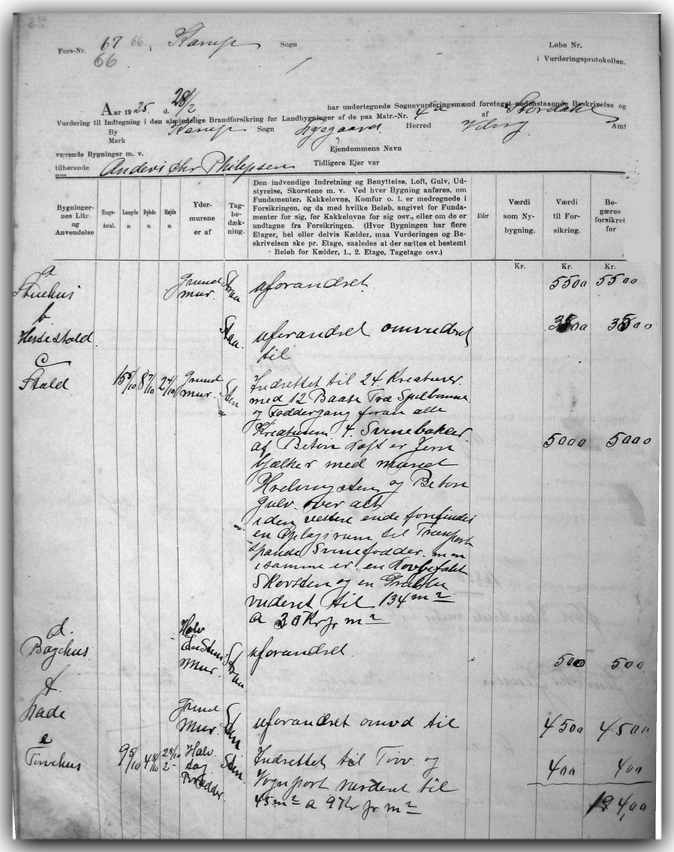 Fors-Nr. 67 66 i Karup Sogn
66
Løbe Nr.
i Vurderingsprotokollen.
Aar 1925 d. 28/2 har undertegnede Sognevurderingsmænd foretaget nedenstaaende Beskrivelse og
Vurdering til Indtegning i den almindelige Brandforsikring for Landbygninger af de paa Matr.-Nr. 4a af
By Karup Sogn Lysgaard Herred Viborg Amt
Mark
Ejendommens Navn
værende Bygninger m. v.
tilhørende Anders Chr Philipsen Tidligere Ejer var
Bygninger-
nes Litr.
og
Anvendelse
Etage-
Antal.
Længde
M
Dybde
M
Højde
M
Yder-
murene
er af
Tag-
be-
dæk-
ning.
Den indvendige Indretning og Benyttelse, Loft, Gulv, Ud-
styrelse, Skorstene m. v. Ved hver Bygning anføres, om
Fundamenter, Kakkelovne, Komfur o. l. er medregnede i
Forsikringen, og da med hvilke Beløb, angivet for Funda-
menter for sig, for Kakkelovne for sig osv., eller om de er
undtagne fra Forsikringen. (Hvor Bygningen har flere
Etager, hel eller delvis Kælder, maa Vurderingen og Be-
skrivelsen ske pr. Etage, saaledes at der sættes et bestemt
Beløb for Kælder, 1., 2. Etage, Tagetage osv.)
Alder
Værdi
som Ny-
bygning.
Værdi
til For-
sikring.
Be-
gæres
forsikret
for
Kr. Kr. Kr.
a
Stuehus Grund
mur. Straa uforandret. 5500 5500
b
Hestestald Straa uforandret omvurdret
til 3500 3500
c
Stald 8 7/10 Grund
mur. Sten Indrettet til 24 Kreaturer
med 12 Baase Træ
og Foddergang foran alle
Kreaturer 4 Svinebokser
af Beton Loft er Jern
bjælker med muret
og Beton
Gulv over alt
i den vestre ende forefindes
en Oplagsrum til
Svinefodder. men
i samme er en
Skorsten og en
vuderet til 134 m²
a 30 Kr pr m² 5000 5000
d.
Baghus Halv
Mur. Straa uforandret. 500 500
f
Lade Grund
Mur. Sten uforandret omvd til 4500 4500
e
Tørvehus 9 5/10 4 8/10 Halv
og
Brædder. Sten Indrettet til Tørv og
Vognport vurdret til
45 m² a 9 Kr pr m² 400 400